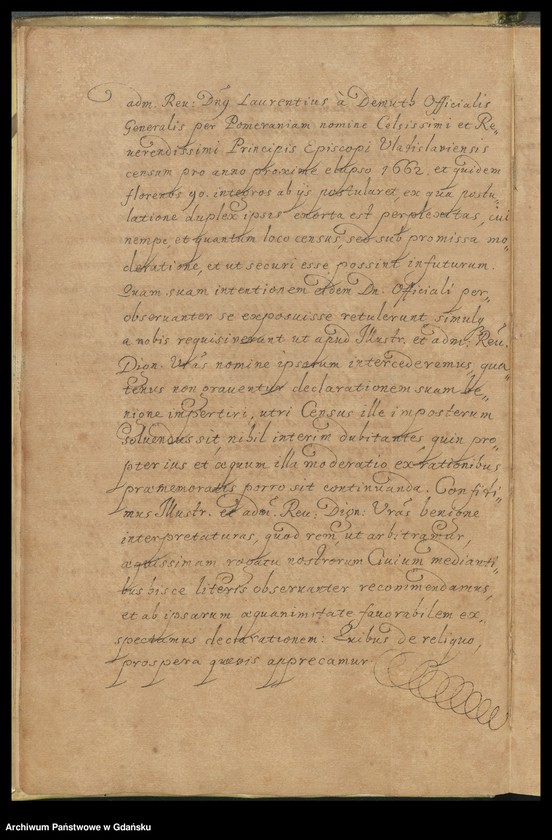 adm. Reu: Dng Laurentius à Demuth Officialis
Generalis per Pomeraniam nomine Celsissimi et Re„
uerendissimi Principis Episcopi Vladislaviensis
censum pro anno proxime elapso 1662, et quidem
florenos 90. integros ab ys postularet, ex qua postu„
latione duplex ipsis exorta est perplexitas, cui
nempe, et quantum loco census, sed sub promissa mo„
deratione, et ut securi esse possint in futurum.
Quam suam intentionem eidem Dn. Officiali per„
observanter se exposuisse retulerunt simul„
a nobis requisiuerunt ut apud Illustr. et adm. Reu.
Dign. Vrãs nomine ipsorum intercederemus, qua„
tenus non grauentur declarationem suam be„
nigne impertiri, utri Census ille imposterum
soluendus sit, nihil interim dubitantes, quin pro„
pter ius et æquum illa moderatio ex rationibus
præmemoratis porro sit continuanda. Confisi„
mus Illustr. et adm. Reu: Dign: Vrãs benigne
interpretaturas, quod rem, ut arbitramur,
æquissimam rogatu nostrorum Ciuium medianti„
bus hisce literis observanter recommendamus,
et ab ipsarum æquanimitate fauorabilem ex„
spectamus declarationem: Quibus de reliquo,
prospera quævis apprecamur
Archiwum Państwowe w Gdańsku